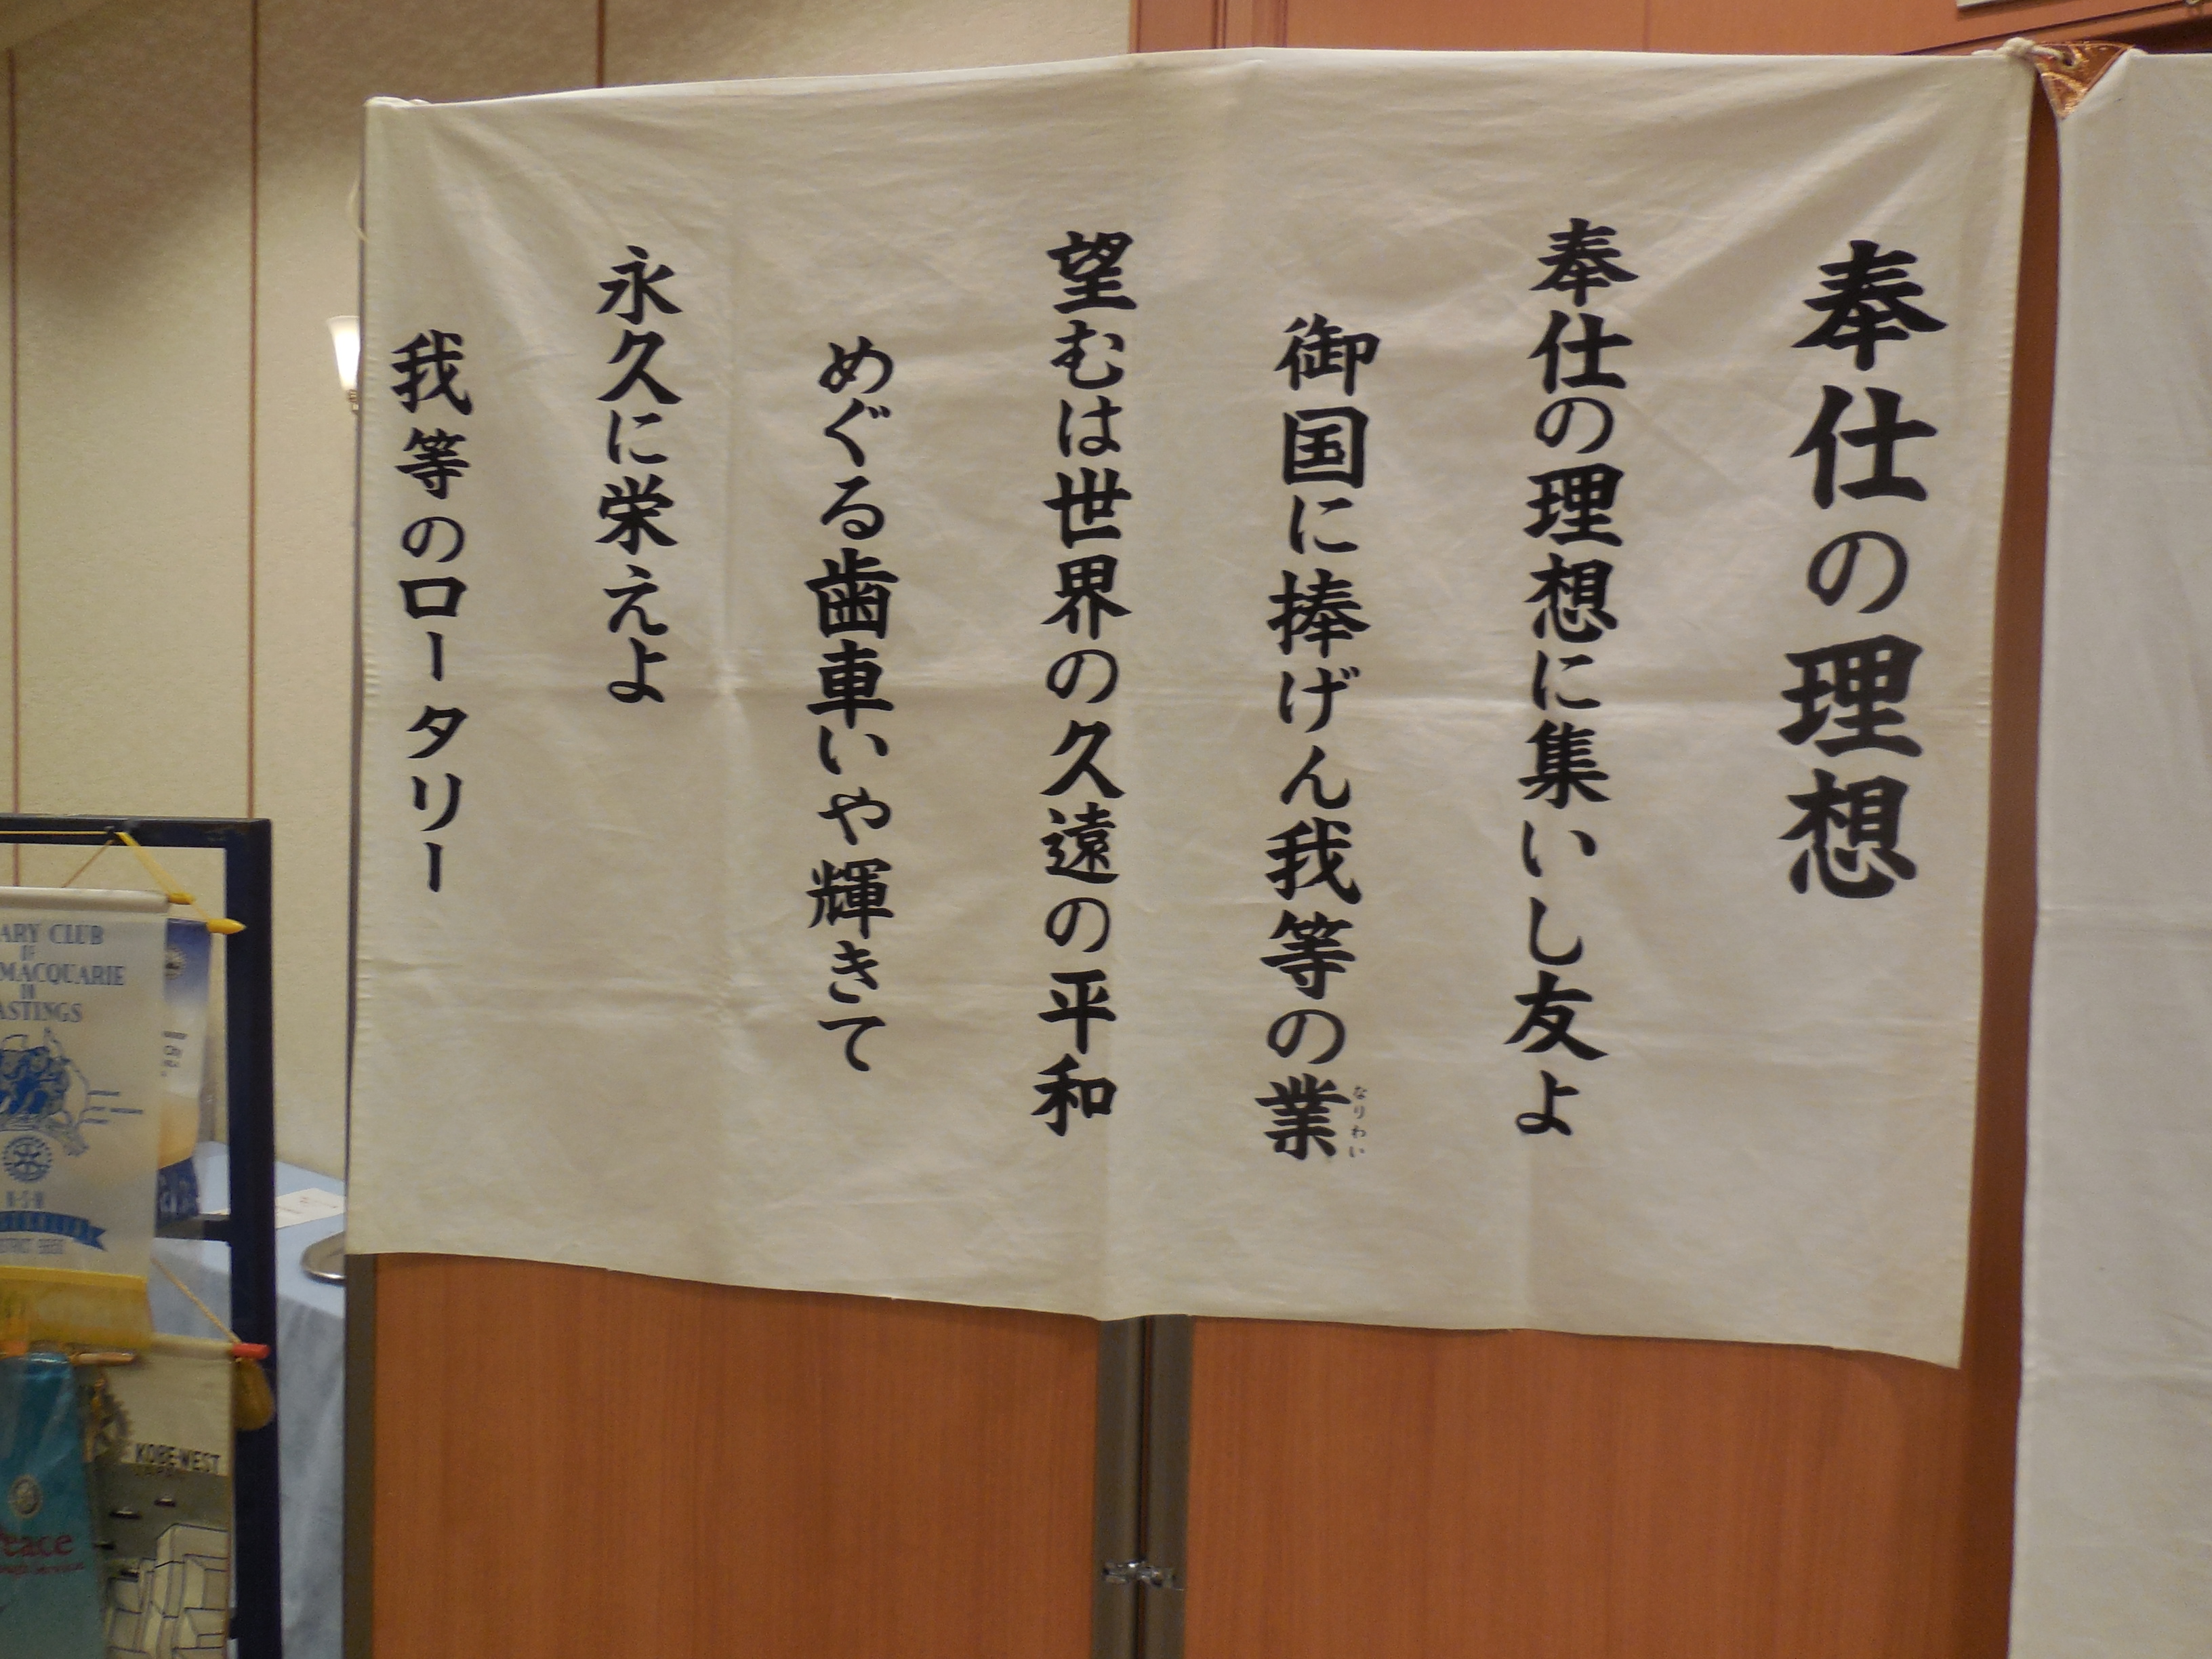 奉仕の理想
奉仕の理想に集いし友よ
御国に捧げん我等の業
なりわい
望むは世界の久遠の平和
めぐる歯車いや輝きて
永久に栄えよ
我等のロータリー
ARY CLUB
OF
MACQUARIE
ASTINGS
N·S·W
City
KOBE-WEST
JAPAN
Peace